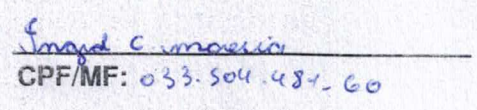 Ingrid C Moreira
CPF/MF: 033.504.481-60